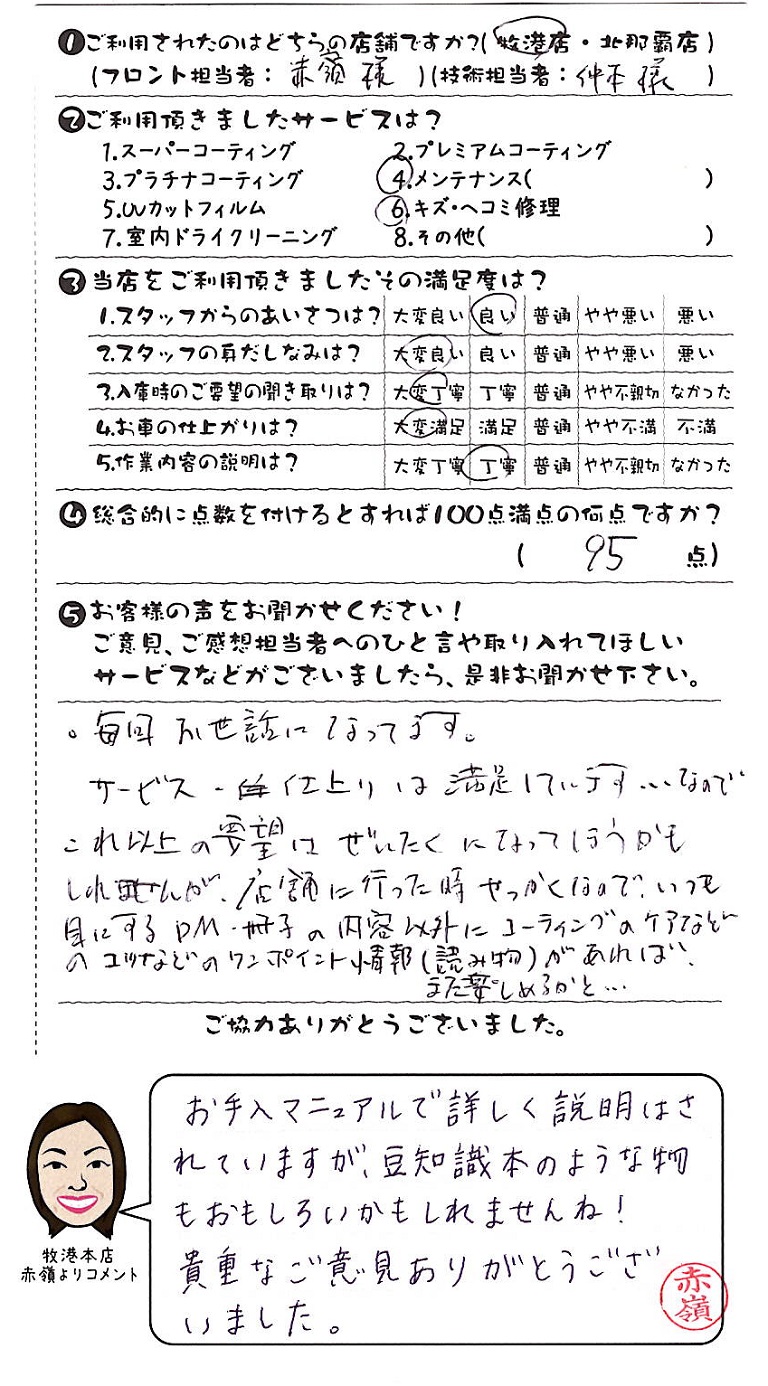 ❶ご利用されたのはどちらの店舗ですか?(牧港店・北那覇店)
(フロント担当者:赤嶺様)(技術担当者:仲本様)
❷ご利用頂きましたサービスは?
1.スーパーコーティング 2.プレミアムコーティング
3.プラチナコーティング 4.メンテナンス( )
5.UVカットフィルム 6.キズ・ヘコミ修理
7.室内ドライクリーニング 8.その他( )
❸当店をご利用頂きましたその満足度は?
1.スタッフからのあいさつは? 大変良い 良い 普通 やや悪い 悪い
2.スタッフの身だしなみは? 大変良い 良い 普通 やや悪い 悪い
3.入庫時のご要望の聞き取りは? 大変丁寧 丁寧 普通 やや不親切 なかった
4.お車の仕上がりは? 大変満足 満足 普通 やや不満 不満
5.作業内容の説明は? 大変丁寧 丁寧 普通 やや不親切 なかった
❹総合的に点数を付けるとすれば100点満点の何点ですか?
( 95 点)
❺お客様の声をお聞かせください!
ご意見、ご感想担当者へのひと言や取り入れてほしい
サービスなどがございましたら、是非お聞かせ下さい。
。毎回お世話になってます。
サービス・仕上りは満足しています...なので
これ以上の要望はぜいたくになってしまうかも
しれませんが、店舗に行った時せっかくなので、いつも
目にするDM・冊子の内容以外にコーティングのケアなど
のコツなどのワンポイント情報(読み物)があれば、
また楽しめるかと...
ご協力ありがとうございました。
お手入マニュアルで詳しく説明はさ
れていますが、豆知識本のような物
もおもしろいかもしれませんね!
貴重なご意見ありがとうござ
いました。
赤嶺
牧港本店
赤嶺よりコメント